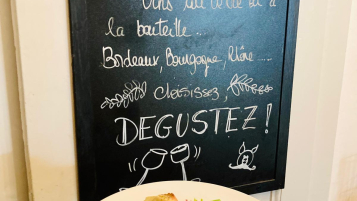 Vins au verre ou à
la bouteille...
Bordeaux, Bourgogne, Rhône....
Choisissez,
DEGUSTEZ!